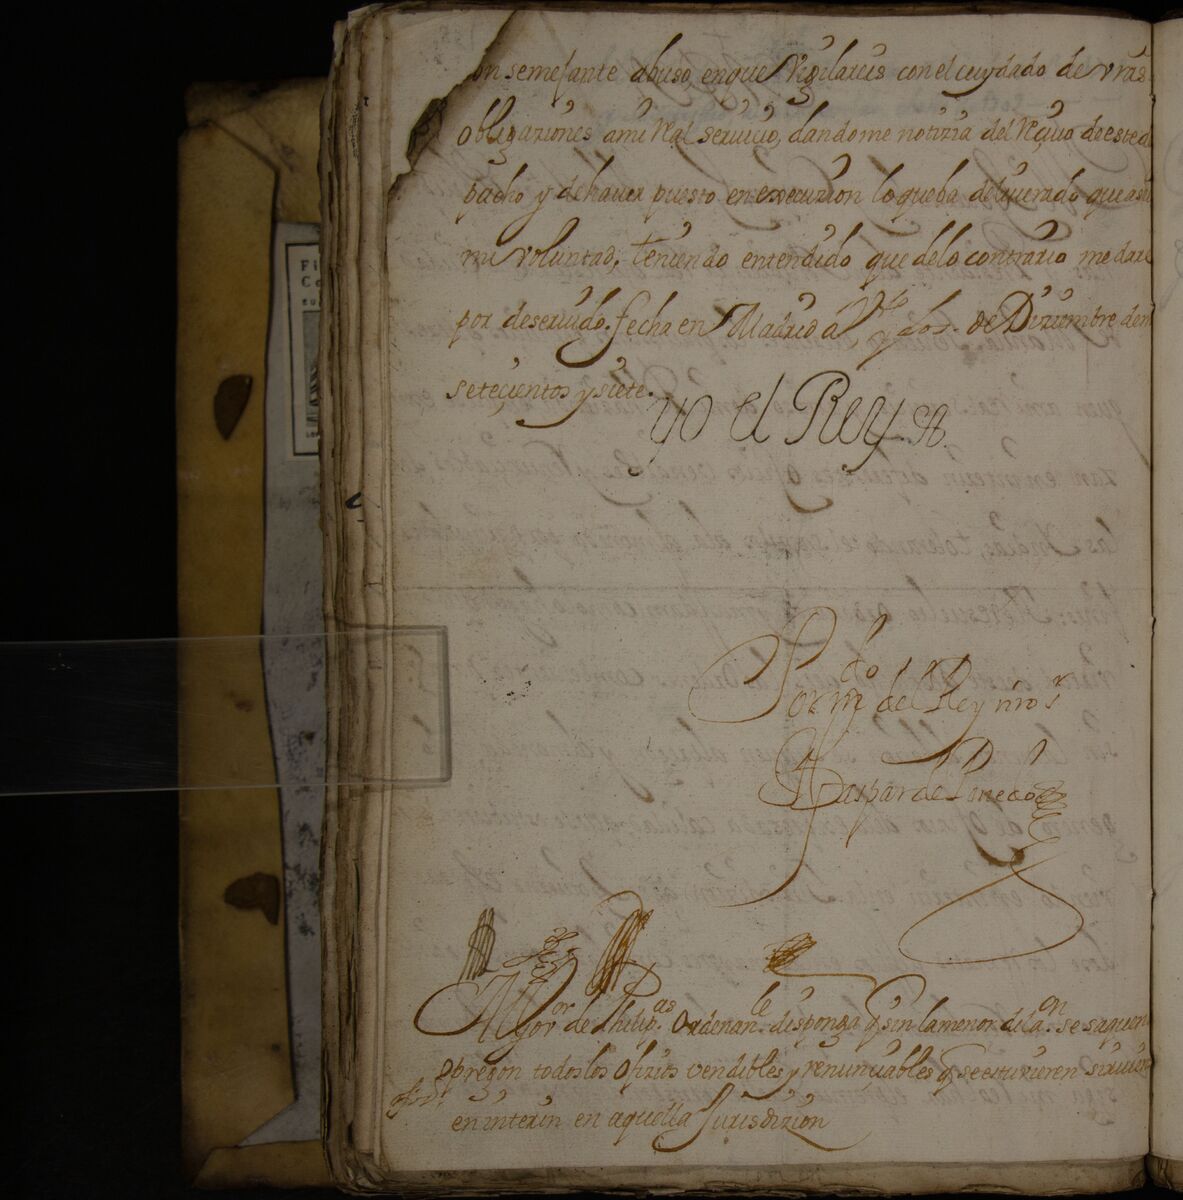 con semejante abuso, en que Vigilareis con el cuydado de vras
obligaziones a mi Real servicio, dandome notizia del Reçiuo de este des
pacho y de hauer puesto en execuzion lo que ba deliuerado que asi es
mi voluntad; teniendo entendido que delo contrario me dare
por deseruido. fecha en Madrid a Vte y dos de Diziembre de mil
seteçientos y siete.
yo el Rey
Por mdo del Rey nro sr
Gaspar de Pinedo
Al Gor de Philipas Ordenanle disponga q sin la menor dilaon se saquen
Pregon todos los Ofizios vendibles y renunciables q se estuvieren siruiendo
en interin en aquella Jurisdizion